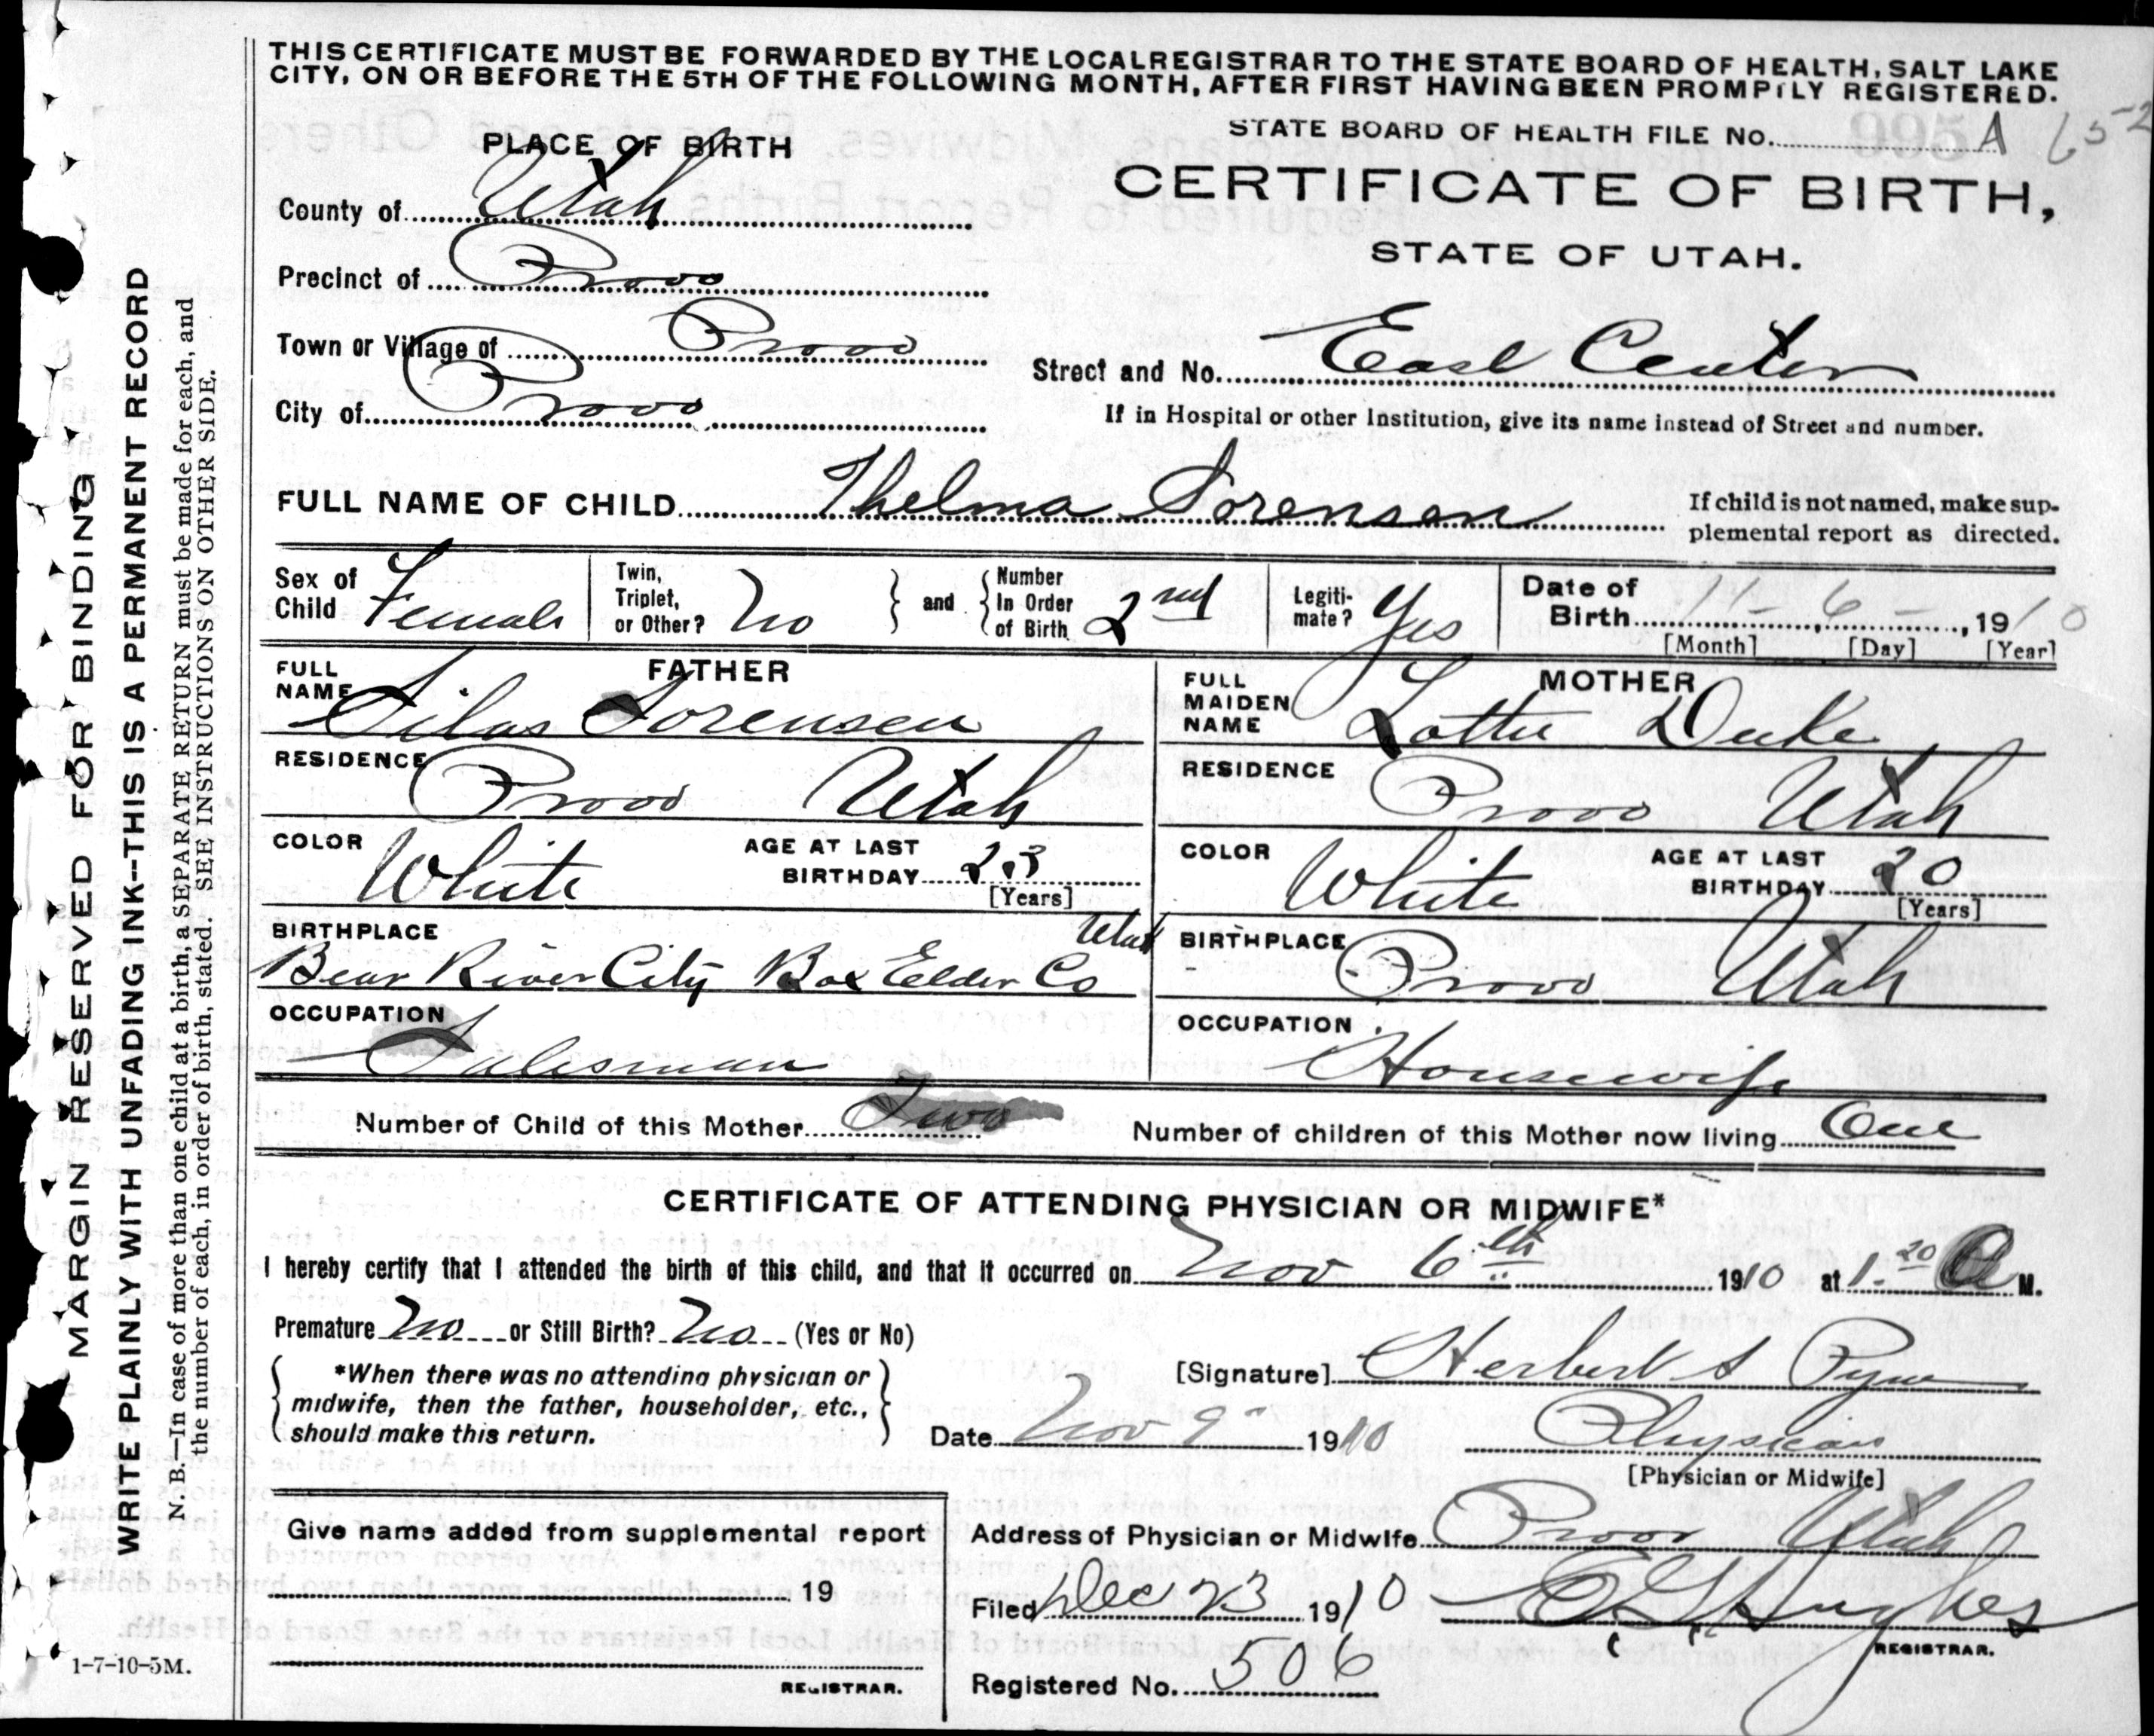 THIS CERTIFICATE MUST BE FORWARDED BY THE LOCAL REGISTRAR TO THE STATE BOARD OF HEALTH, SALT LAKE
CITY, ON OR BEFORE THE 5TH OF THE FOLLOWING MONTH, AFTER FIRST HAVING BEEN PROMPTLY REGISTERED.
STATE BOARD OF HEALTH FILE No. A 652
PLACE OF BIRTH
CERTIFICATE OF BIRTH,
STATE OF UTAH.
County of Utah
Precinct of Provo
Town or Village of Provo
City of Provo
Street and No. East Center
If in Hospital or other Institution, give its name instead of Street and number.
FULL NAME OF CHILD Thelma Sorensen
If child is not named, make sup-
plemental report as directed.
Sex of Child Female
Twin, Triplet, or Other? No
and Number In Order of Birth 2nd
Legiti-mate? Yes
Date of Birth 11 - 6 - , 1910
[Month] [Day] [Year]
FATHER
FULL NAME Silas Sorensen
RESIDENCE Provo Utah
COLOR White AGE AT LAST BIRTHDAY 23 [Years]
BIRTHPLACE Bear River City Box Elder Co Utah
OCCUPATION Salesman
MOTHER
FULL MAIDEN NAME Lottie Duke
RESIDENCE Provo Utah
COLOR White AGE AT LAST BIRTHDAY 20 [Years]
BIRTHPLACE Provo Utah
OCCUPATION Housewife
Number of Child of this Mother Two Number of children of this Mother now living One
CERTIFICATE OF ATTENDING PHYSICIAN OR MIDWIFE*
I hereby certify that I attended the birth of this child, and that it occurred on Nov 6th 1910 at 1.20 A M.
Premature No or Still Birth? No (Yes or No)
*When there was no attending physician or
midwife, then the father, householder, etc.,
should make this return.
[Signature] Herbert S Pyne
Date Nov 9 1910 Physician
[Physician or Midwife]
Give name added from supplemental report
19
REGISTRAR.
Address of Physician or Midwife Provo Utah
Filed Dec 23 1910 Hughes
REGISTRAR.
Registered No. 506
MARGIN RESERVED FOR BINDING
WRITE PLAINLY WITH UNFADING INK--THIS IS A PERMANENT RECORD
N. B.—In case of more than one child at a birth, a SEPARATE RETURN must be made for each, and
the number of each, in order of birth, stated. SEE INSTRUCTIONS ON OTHER SIDE.
1-7-10-5M.